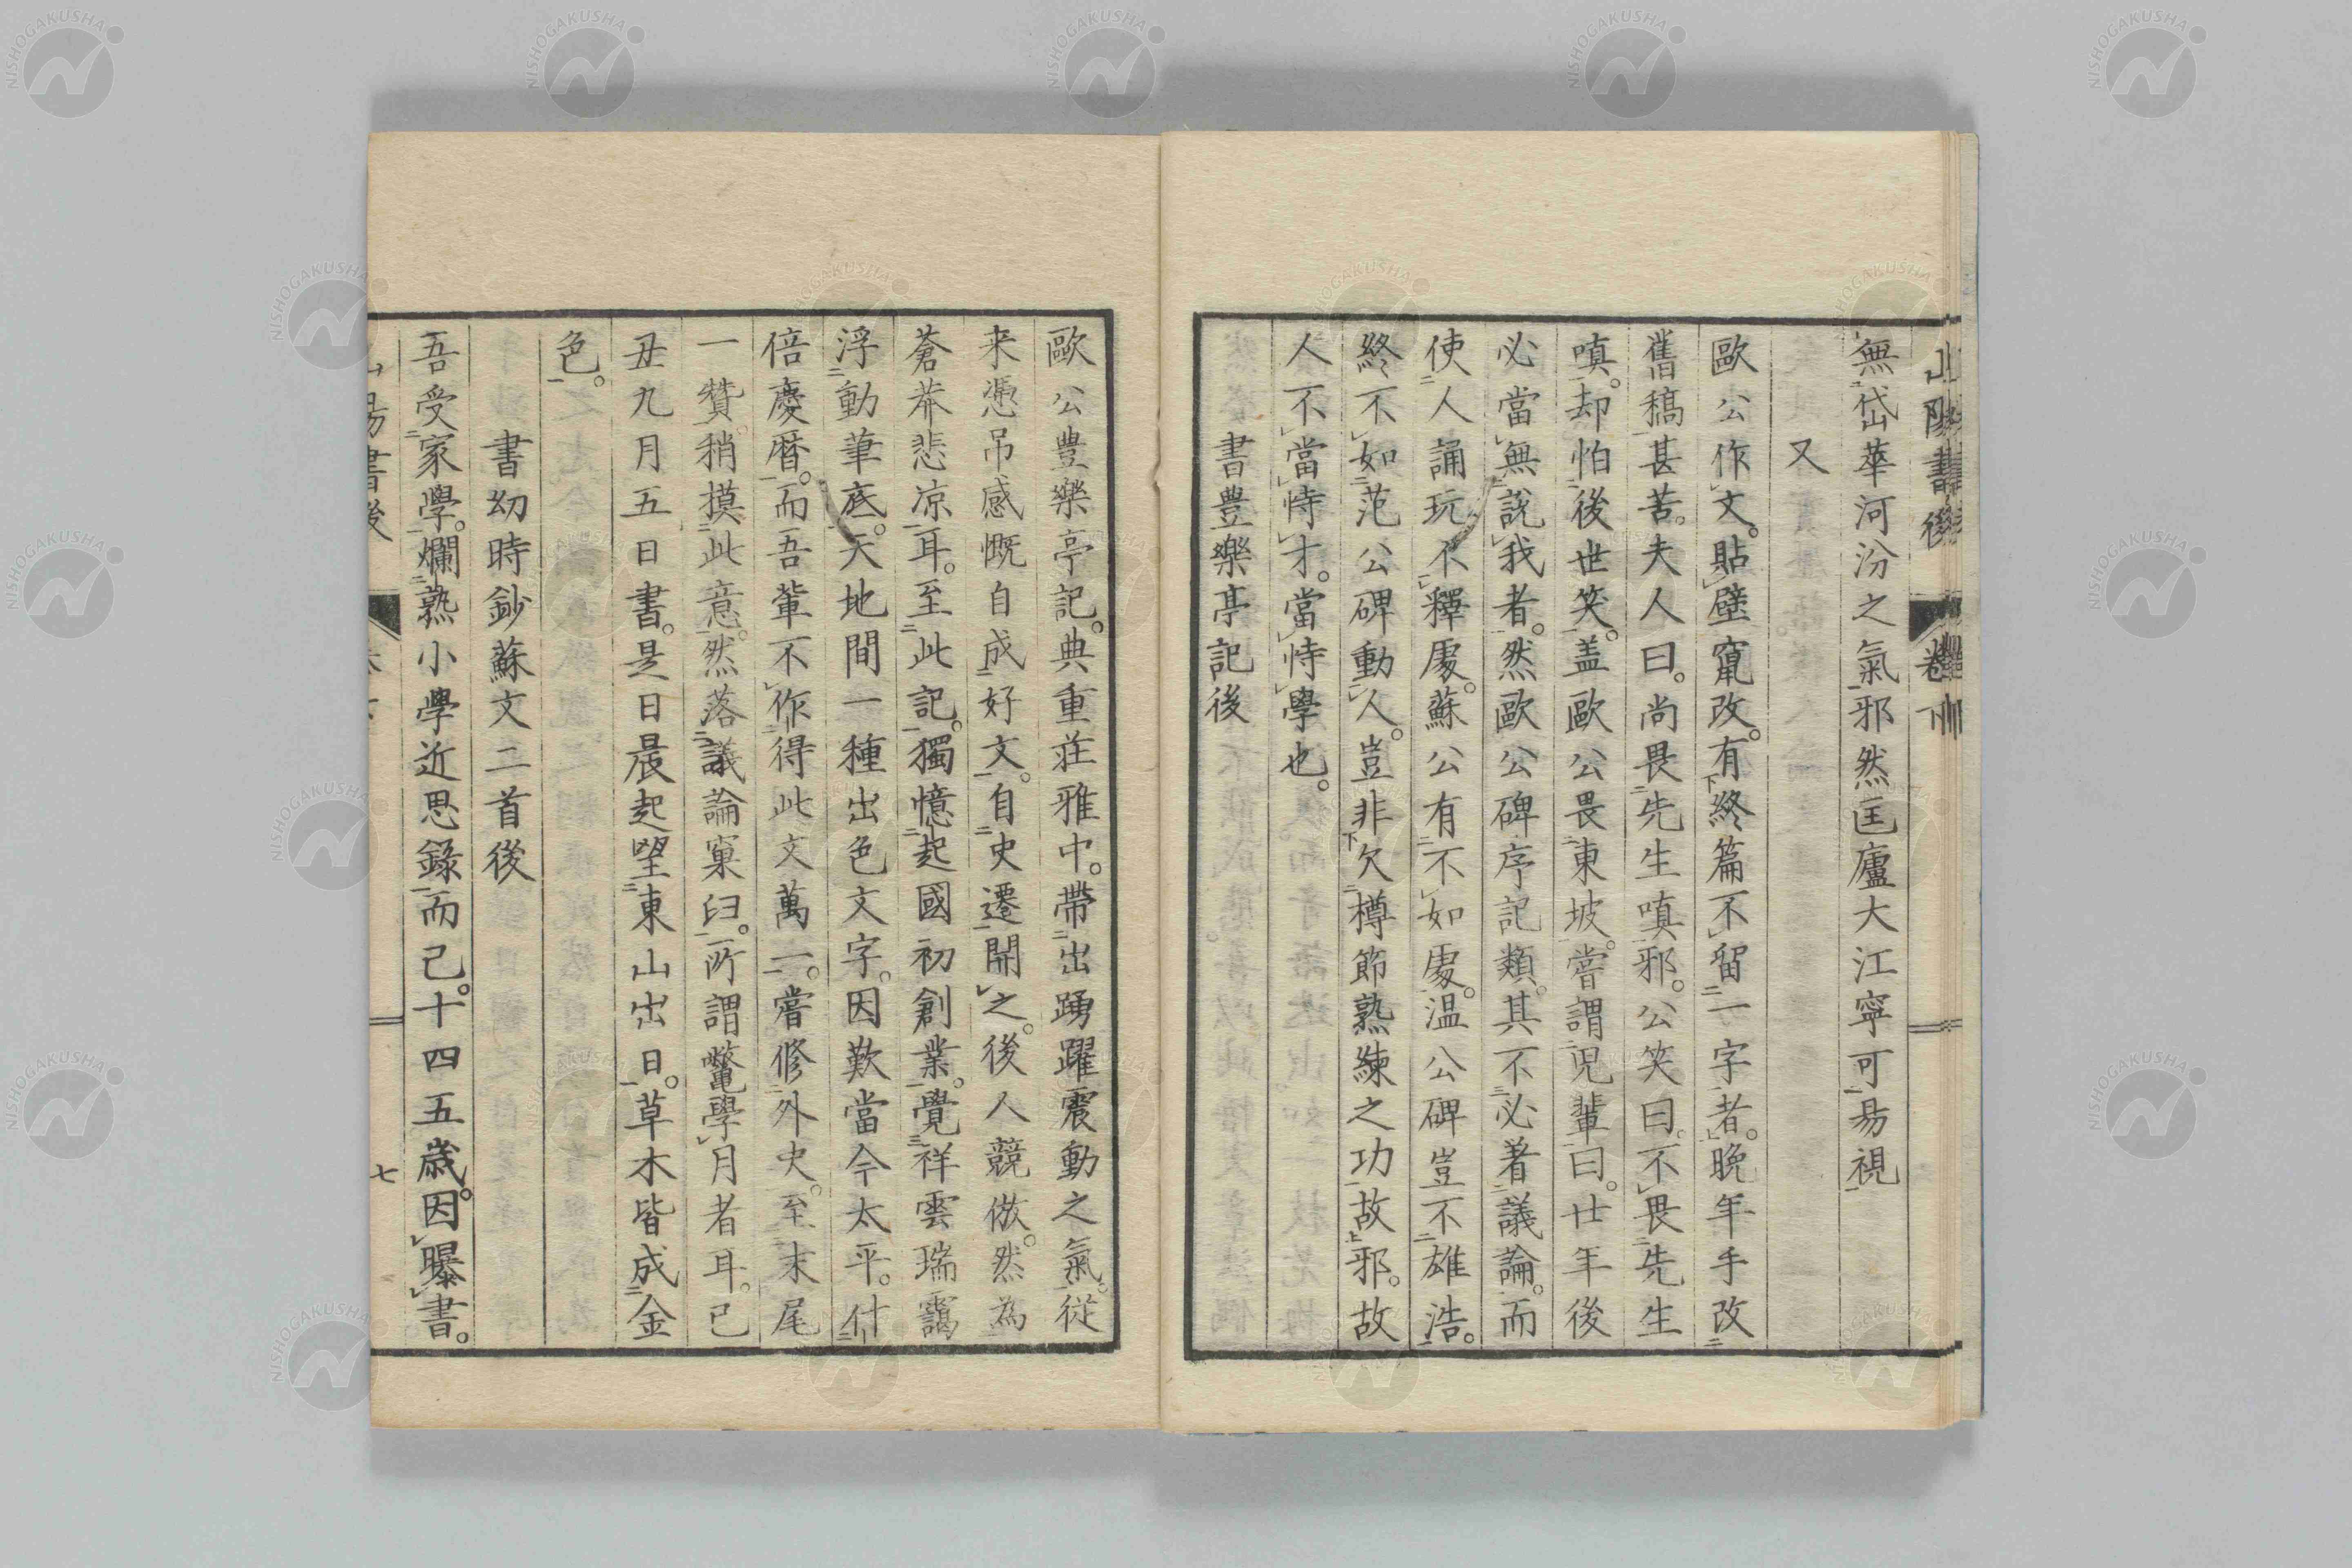 山陽書後 卷下
無岱華河汾之氣邪然匡廬大江寧可易視
又
歐公作文。貼壁竄改。有終篇不留一字者。晩年手改
舊稿甚苦。夫人曰。尚畏先生嗔邪。公笑曰。不畏先生
嗔。却怕後世笑。盖歐公畏東坡。嘗謂児輩曰。廿年後
必當無說我者。然歐公碑序記類。其不必著議論。而
使人誦玩不釋處。蘇公有不如處。温公碑豈不雄浩。
終不如范公碑動人。豈非欠樽節熟練之功故邪。故
人不當恃才。當恃學也。
書豊樂亭記後
歐公豊樂亭記。典重莊雅中。帶出踴躍震動之氣。従
来憑吊感慨自成好文。自史遷開之。後人競倣。然為
蒼莽悲凉耳。至此記。獨憶起國初創業。覺祥雲瑞靄
浮動筆底。天地間一種出色文字。因歎當今太平。什
倍慶暦。而吾輩不作得此文萬一。嘗修外史。至末尾
一贊。稍摸此意。然落議論窠臼。所謂鼈學月者耳。己
丑九月五日書。是日晨起望東山出日。草木皆成金
色。
書幼時鈔蘇文二首後
吾受家學。爛熟小學近思錄而己。十四五歳。因曝書。
七
NISHOGAKUSHA